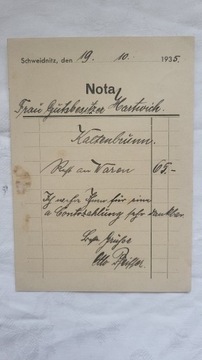 Schweidnitz, den 19. 10. 1935.
Nota
Frau Gutsbesitzer Hartwich.
Kaltenbrunn.
Rest an Waren 65.-
Ich wäre Ihnen für eine
a Contozahlung sehr dankbar
Grüße
Otto